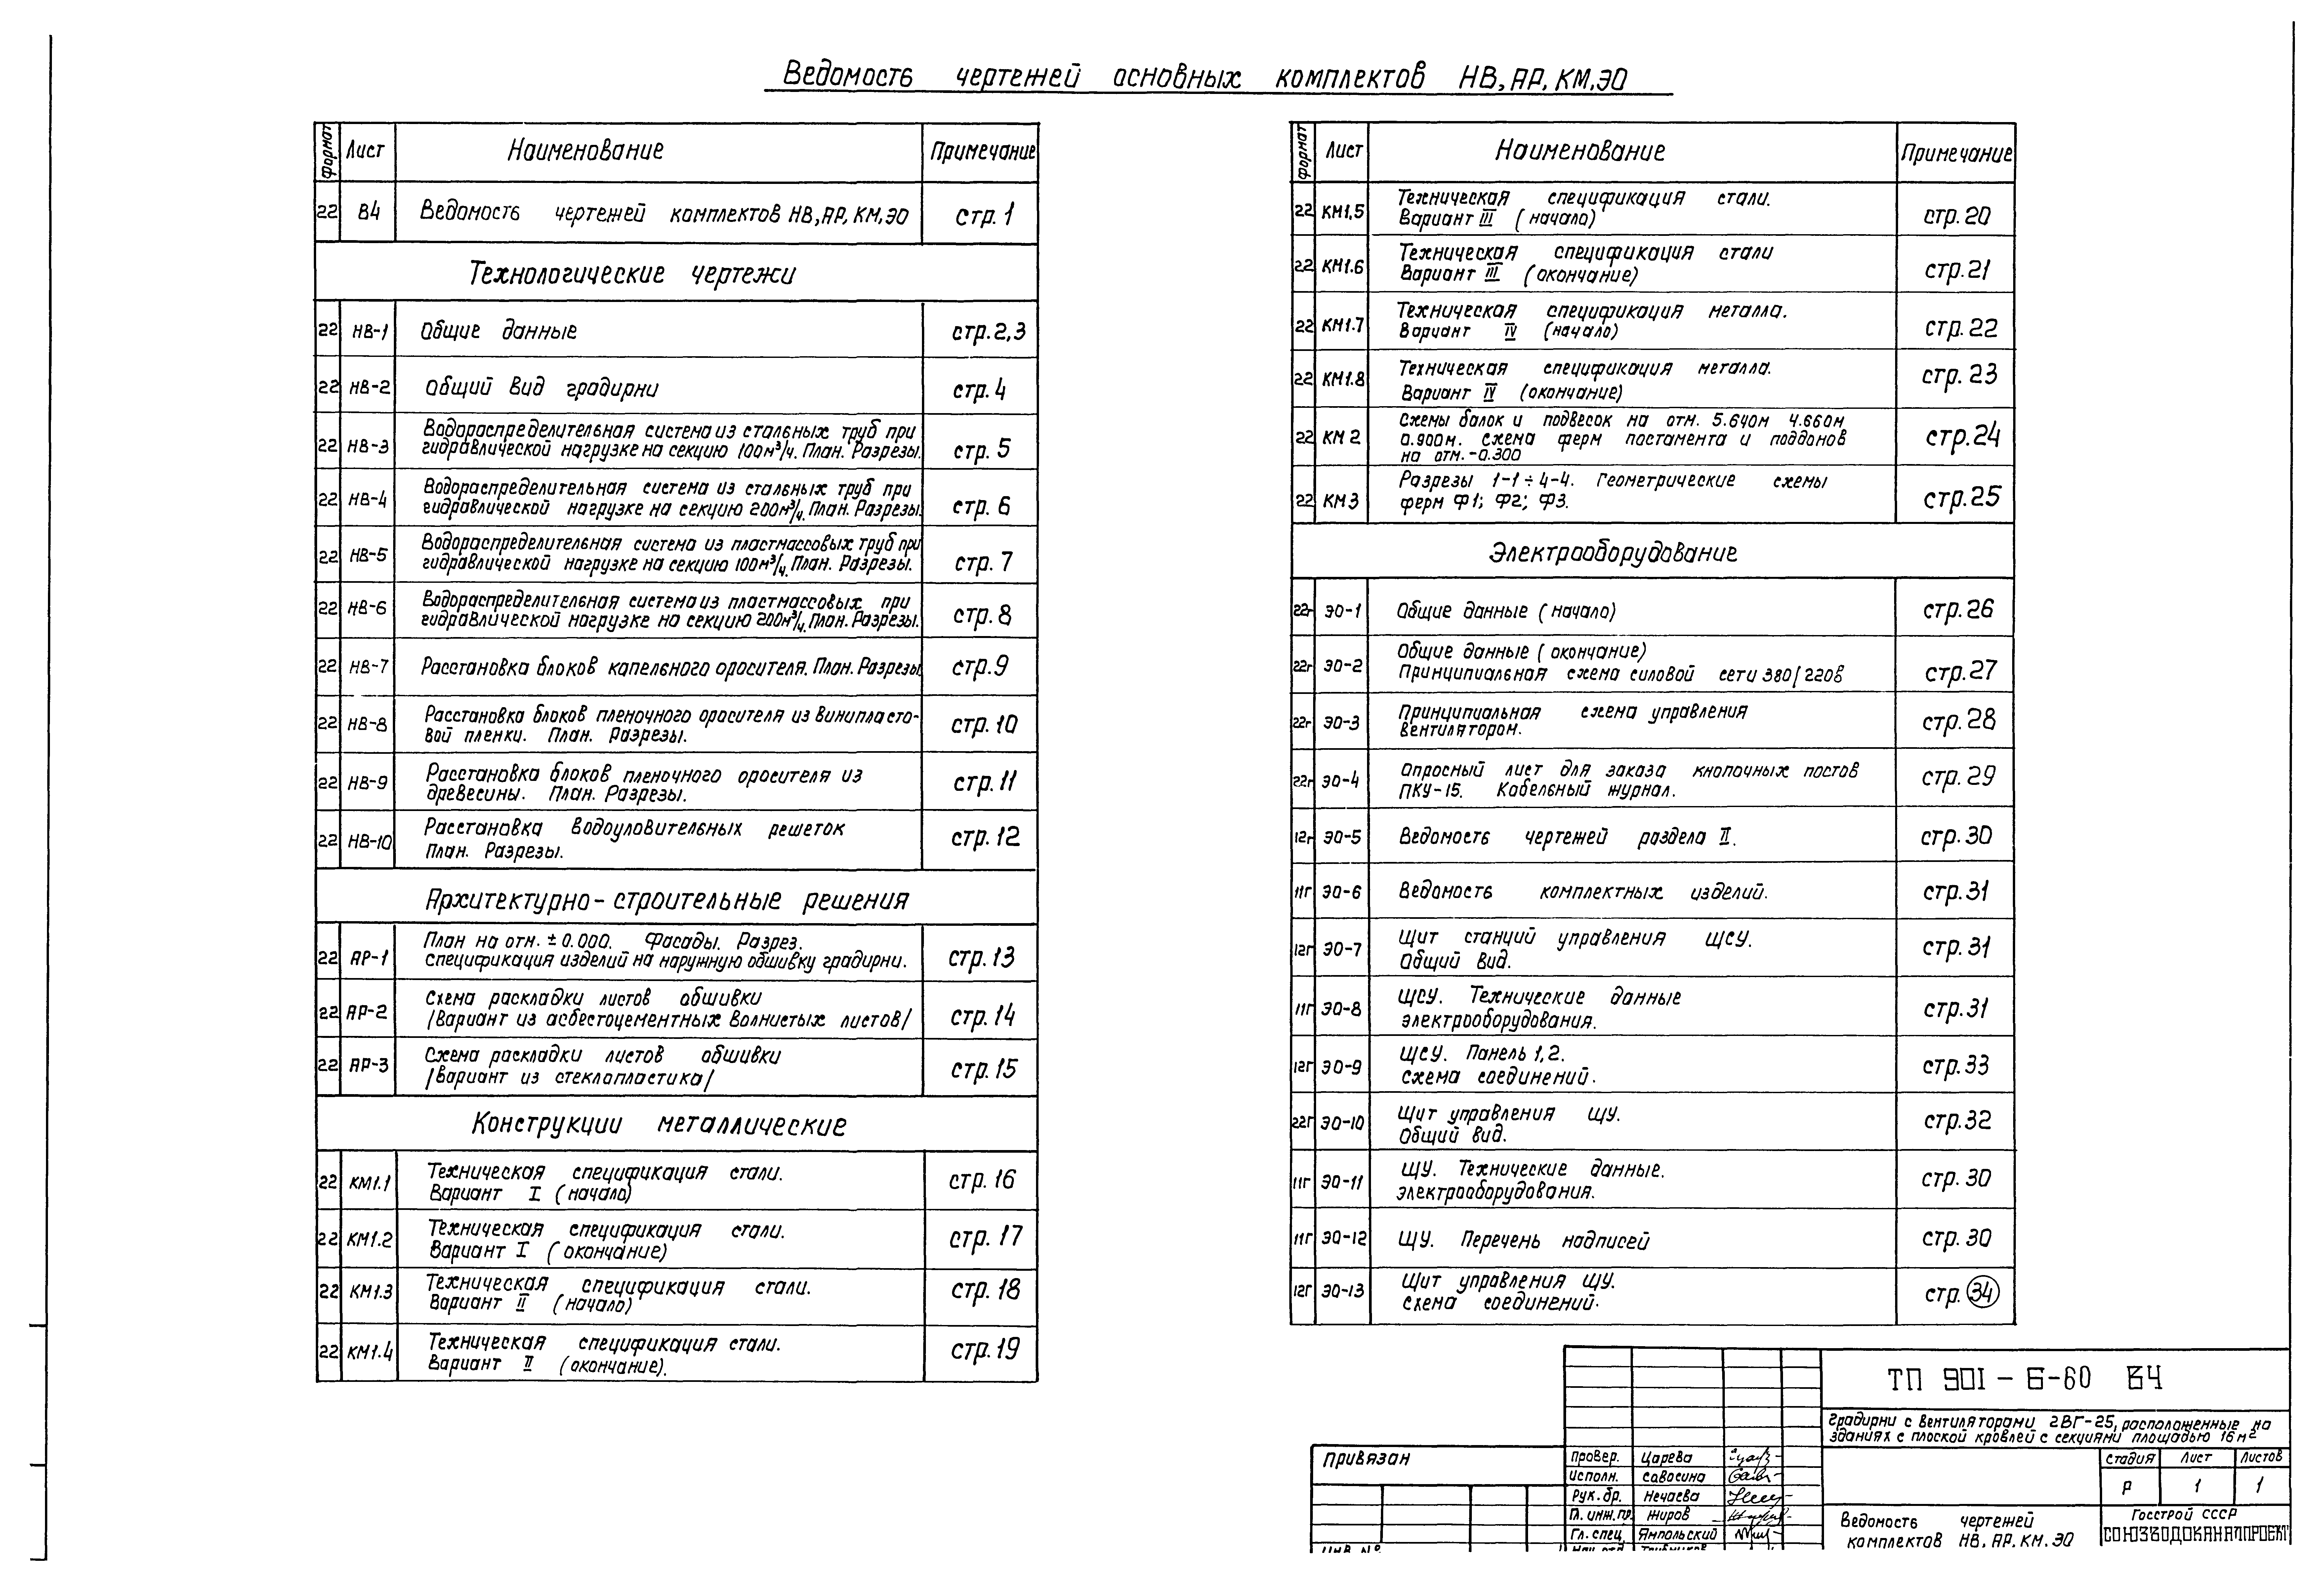 Ведомость чертежей основных комплектов НВ, АР, КМ, ЭО
Формат Лист Наименование Примечание
22 В4 Ведомость чертежей комплектов НВ, АР, КМ, ЭО стр. 1
Технологические чертежи
22 НВ-1 Общие данные стр. 2,3
22 НВ-2 Общий вид градирни стр. 4
22 НВ-3 Водораспределительная система из стальных труб при
гидравлической нагрузке на секцию 100м³/ч. План. Разрезы. стр. 5
22 НВ-4 Водораспределительная система из стальных труб при
гидравлической нагрузке на секцию 200м³/ч. План. Разрезы. стр. 6
22 НВ-5 Водораспределительная система из пластмассовых труб при
гидравлической нагрузке на секцию 100м³/ч. План. Разрезы. стр. 7
22 НВ-6 Водораспределительная система из пластмассовых при
гидравлической нагрузке на секцию 200м³/ч. План. Разрезы. стр. 8
22 НВ-7 Расстановка блоков капельного оросителя. План. Разрезы стр. 9
22 НВ-8 Расстановка блоков пленочного оросителя из винипласто-
вой пленки. План. Разрезы. стр. 10
22 НВ-9 Расстановка блоков пленочного оросителя из
древесины. План. Разрезы. стр. 11
22 НВ-10 Расстановка водоуловительных решеток
План. Разрезы. стр. 12
Архитектурно-строительные решения
22 АР-1 План на отм. ±0.000. Фасады. Разрез.
Спецификация изделий на наружную обшивку градирни. стр. 13
22 АР-2 Схема раскладки листов обшивки
/Вариант из асбестоцементных волнистых листов/ стр. 14
22 АР-3 Схема раскладки листов обшивки
/Вариант из стеклопластика/ стр. 15
Конструкции металлические
22 КМ1.1 Техническая спецификация стали.
Вариант I (начало) стр. 16
22 КМ1.2 Техническая спецификация стали.
Вариант I (окончание) стр. 17
22 КМ1.3 Техническая спецификация стали.
Вариант II (начало) стр. 18
22 КМ1.4 Техническая спецификация стали.
Вариант II (окончание). стр. 19
Формат Лист Наименование Примечание
22 КМ1.5 Техническая спецификация стали.
Вариант III (начало) стр. 20
22 КМ1.6 Техническая спецификация стали
Вариант III (окончание) стр. 21
22 КМ1.7 Техническая спецификация металла.
Вариант IV (начало) стр. 22
22 КМ1.8 Техническая спецификация металла.
Вариант IV (окончание) стр. 23
22 КМ2 Схемы балок и подвесок на отм. 5.640м 4.660м
0.900м. Схема ферм постамента и поддонов
на отм. -0.300 стр. 24
22 КМ3 Разрезы 1-1÷4-4. Геометрические схемы
ферм Ф1; Ф2; Ф3. стр. 25
Электрооборудование
22г ЭО-1 Общие данные (начало) стр. 26
22г ЭО-2 Общие данные (окончание)
Принципиальная схема силовой сети 380/220в стр. 27
22г ЭО-3 Принципиальная схема управления
вентилятором. стр. 28
22г ЭО-4 Опросный лист для заказа кнопочных постов
ПКУ-15. Кабельный журнал. стр. 29
12г ЭО-5 Ведомость чертежей раздела II. стр. 30
11г ЭО-6 Ведомость комплектных изделий. стр. 31
12г ЭО-7 Щит станций управления ЩСУ.
Общий вид. стр. 31
11г ЭО-8 ЩСУ. Технические данные
электрооборудования. стр. 31
12г ЭО-9 ЩСУ. Панель 1,2.
Схема соединений. стр. 33
22г ЭО-10 Щит управления ЩУ.
Общий вид. стр. 32
11г ЭО-11 ЩУ. Технические данные.
электрооборудования. стр. 30
11г ЭО-12 ЩУ. Перечень надписей стр. 30
12г ЭО-13 Щит управления ЩУ.
Схема соединений. стр. 34
ТП 901-6-60 ВЧ
Градирни с вентиляторами 2ВГ-25, расположенные на
зданиях с плоской кровлей с секциями площадью 16м²
Привязан
Провер. Царева
Исполн. Савосина
Рук. бр. Нечаева
Гл. инж. пр. Жиров
Гл. спец. Ямпольский
Стадия Лист Листов
Р 1 1
Ведомость чертежей
комплектов НВ, АР, КМ, ЭО
Госстрой СССР
СОЮЗВОДОКАНАЛПРОЕКТ